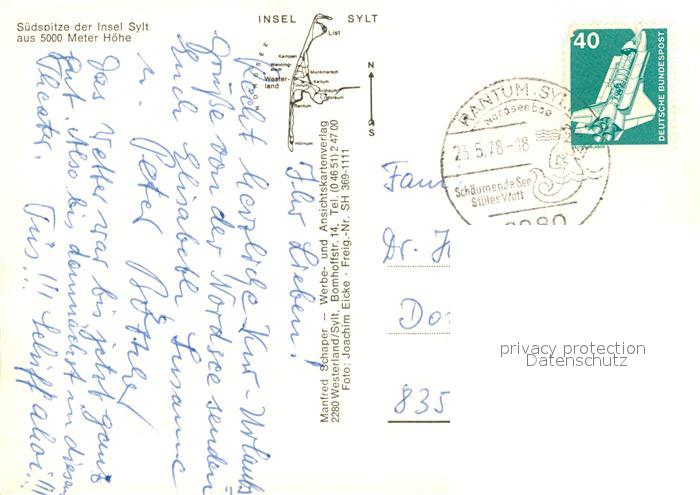 Südspitze der Insel Sylt
aus 5000 Meter Höhe
INSEL SYLT
NORDSEE
List
Kampen
Wenning-
stedt
Wester-
land
Munkmarsch
Keitum
Rantum
Hörnum
N
S
40
DEUTSCHE BUNDESPOST
RANTUM, SYLT
Nordseebad
23.5.78-18
Schäumende See
Stilles Watt
2280
Manfred Schaper – Werbe- und Ansichtskartenverlag
2280 Westerland/Sylt, Bomhoffstr. 14, Tel. (0 46 51) 2 47 00
Foto: Joachim Eicke · Freig.-Nr. SH 369-1111
Ihr Lieben!
Recht herzliche Kur-Urlaubs
Grüße von der Nordsee senden
Euch Elisabeth Susanne
u. Peter
Das Wetter war bis jetzt ganz
gut. Also bis demnächst in diesem
Theater.
Tüs!!! Schiff ahoi!!!
Fam
Dr. H
Do
835
privacy protection
Datenschutz